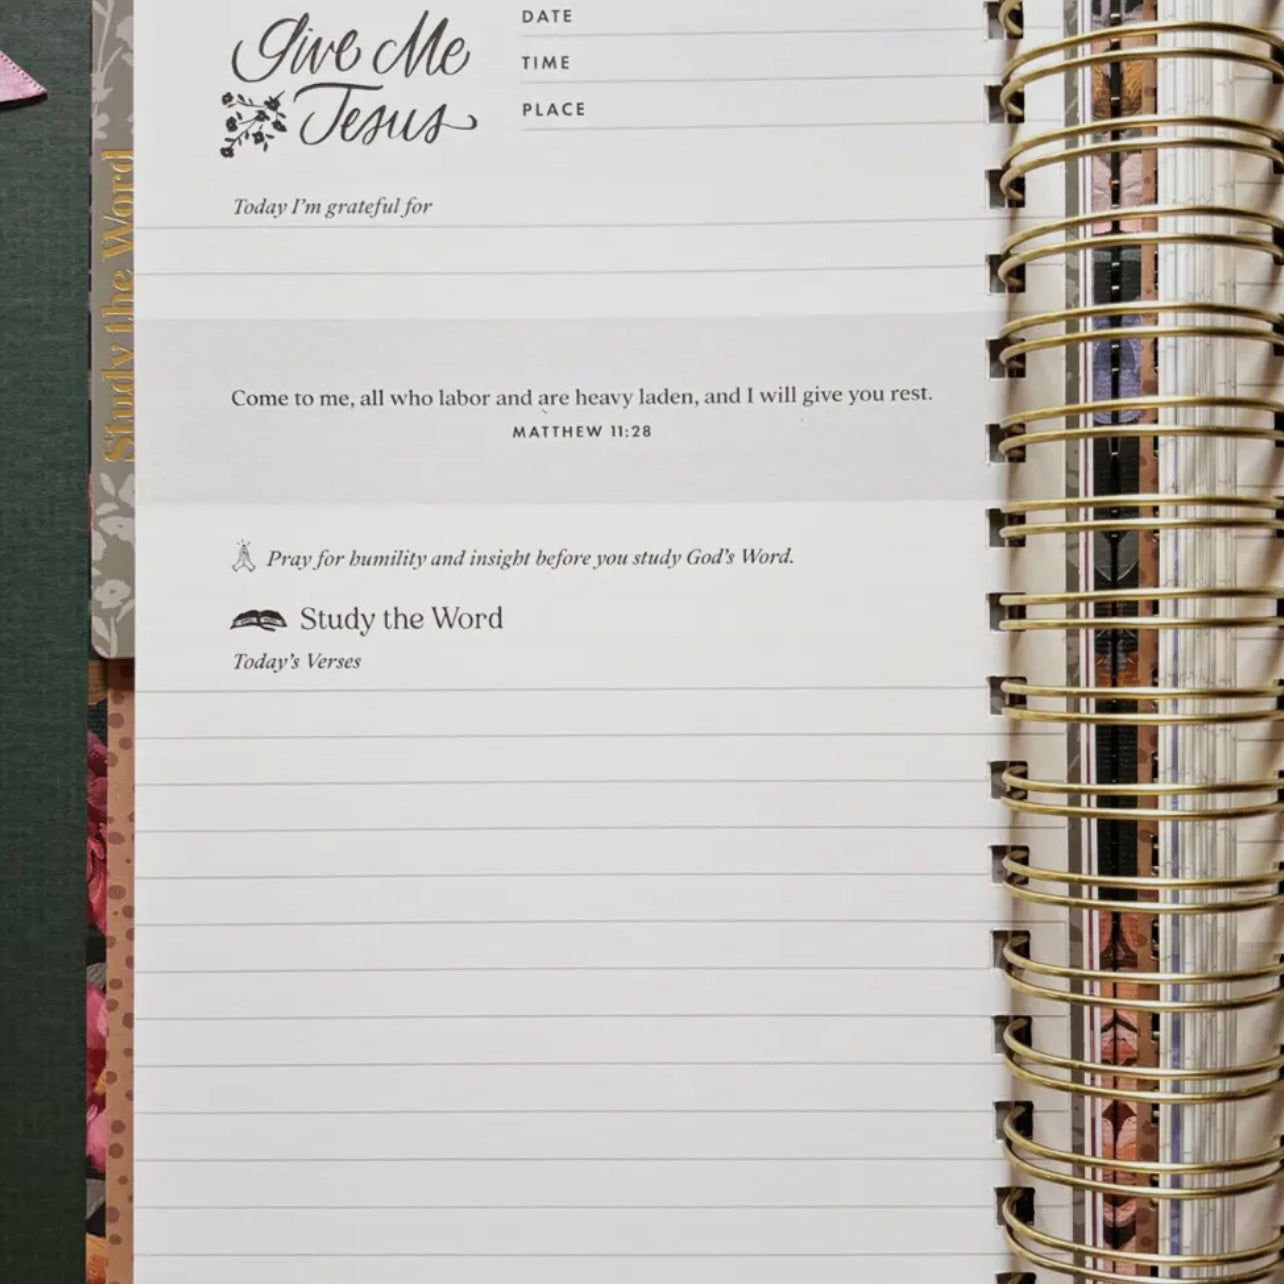 Give Me
Jesus
DATE
TIME
PLACE
Today I'm grateful for
Come to me, all who labor and are heavy laden, and I will give you rest.
MATTHEW 11:28
Pray for humility and insight before you study God's Word.
Study the Word
Today's Verses
Study the Word